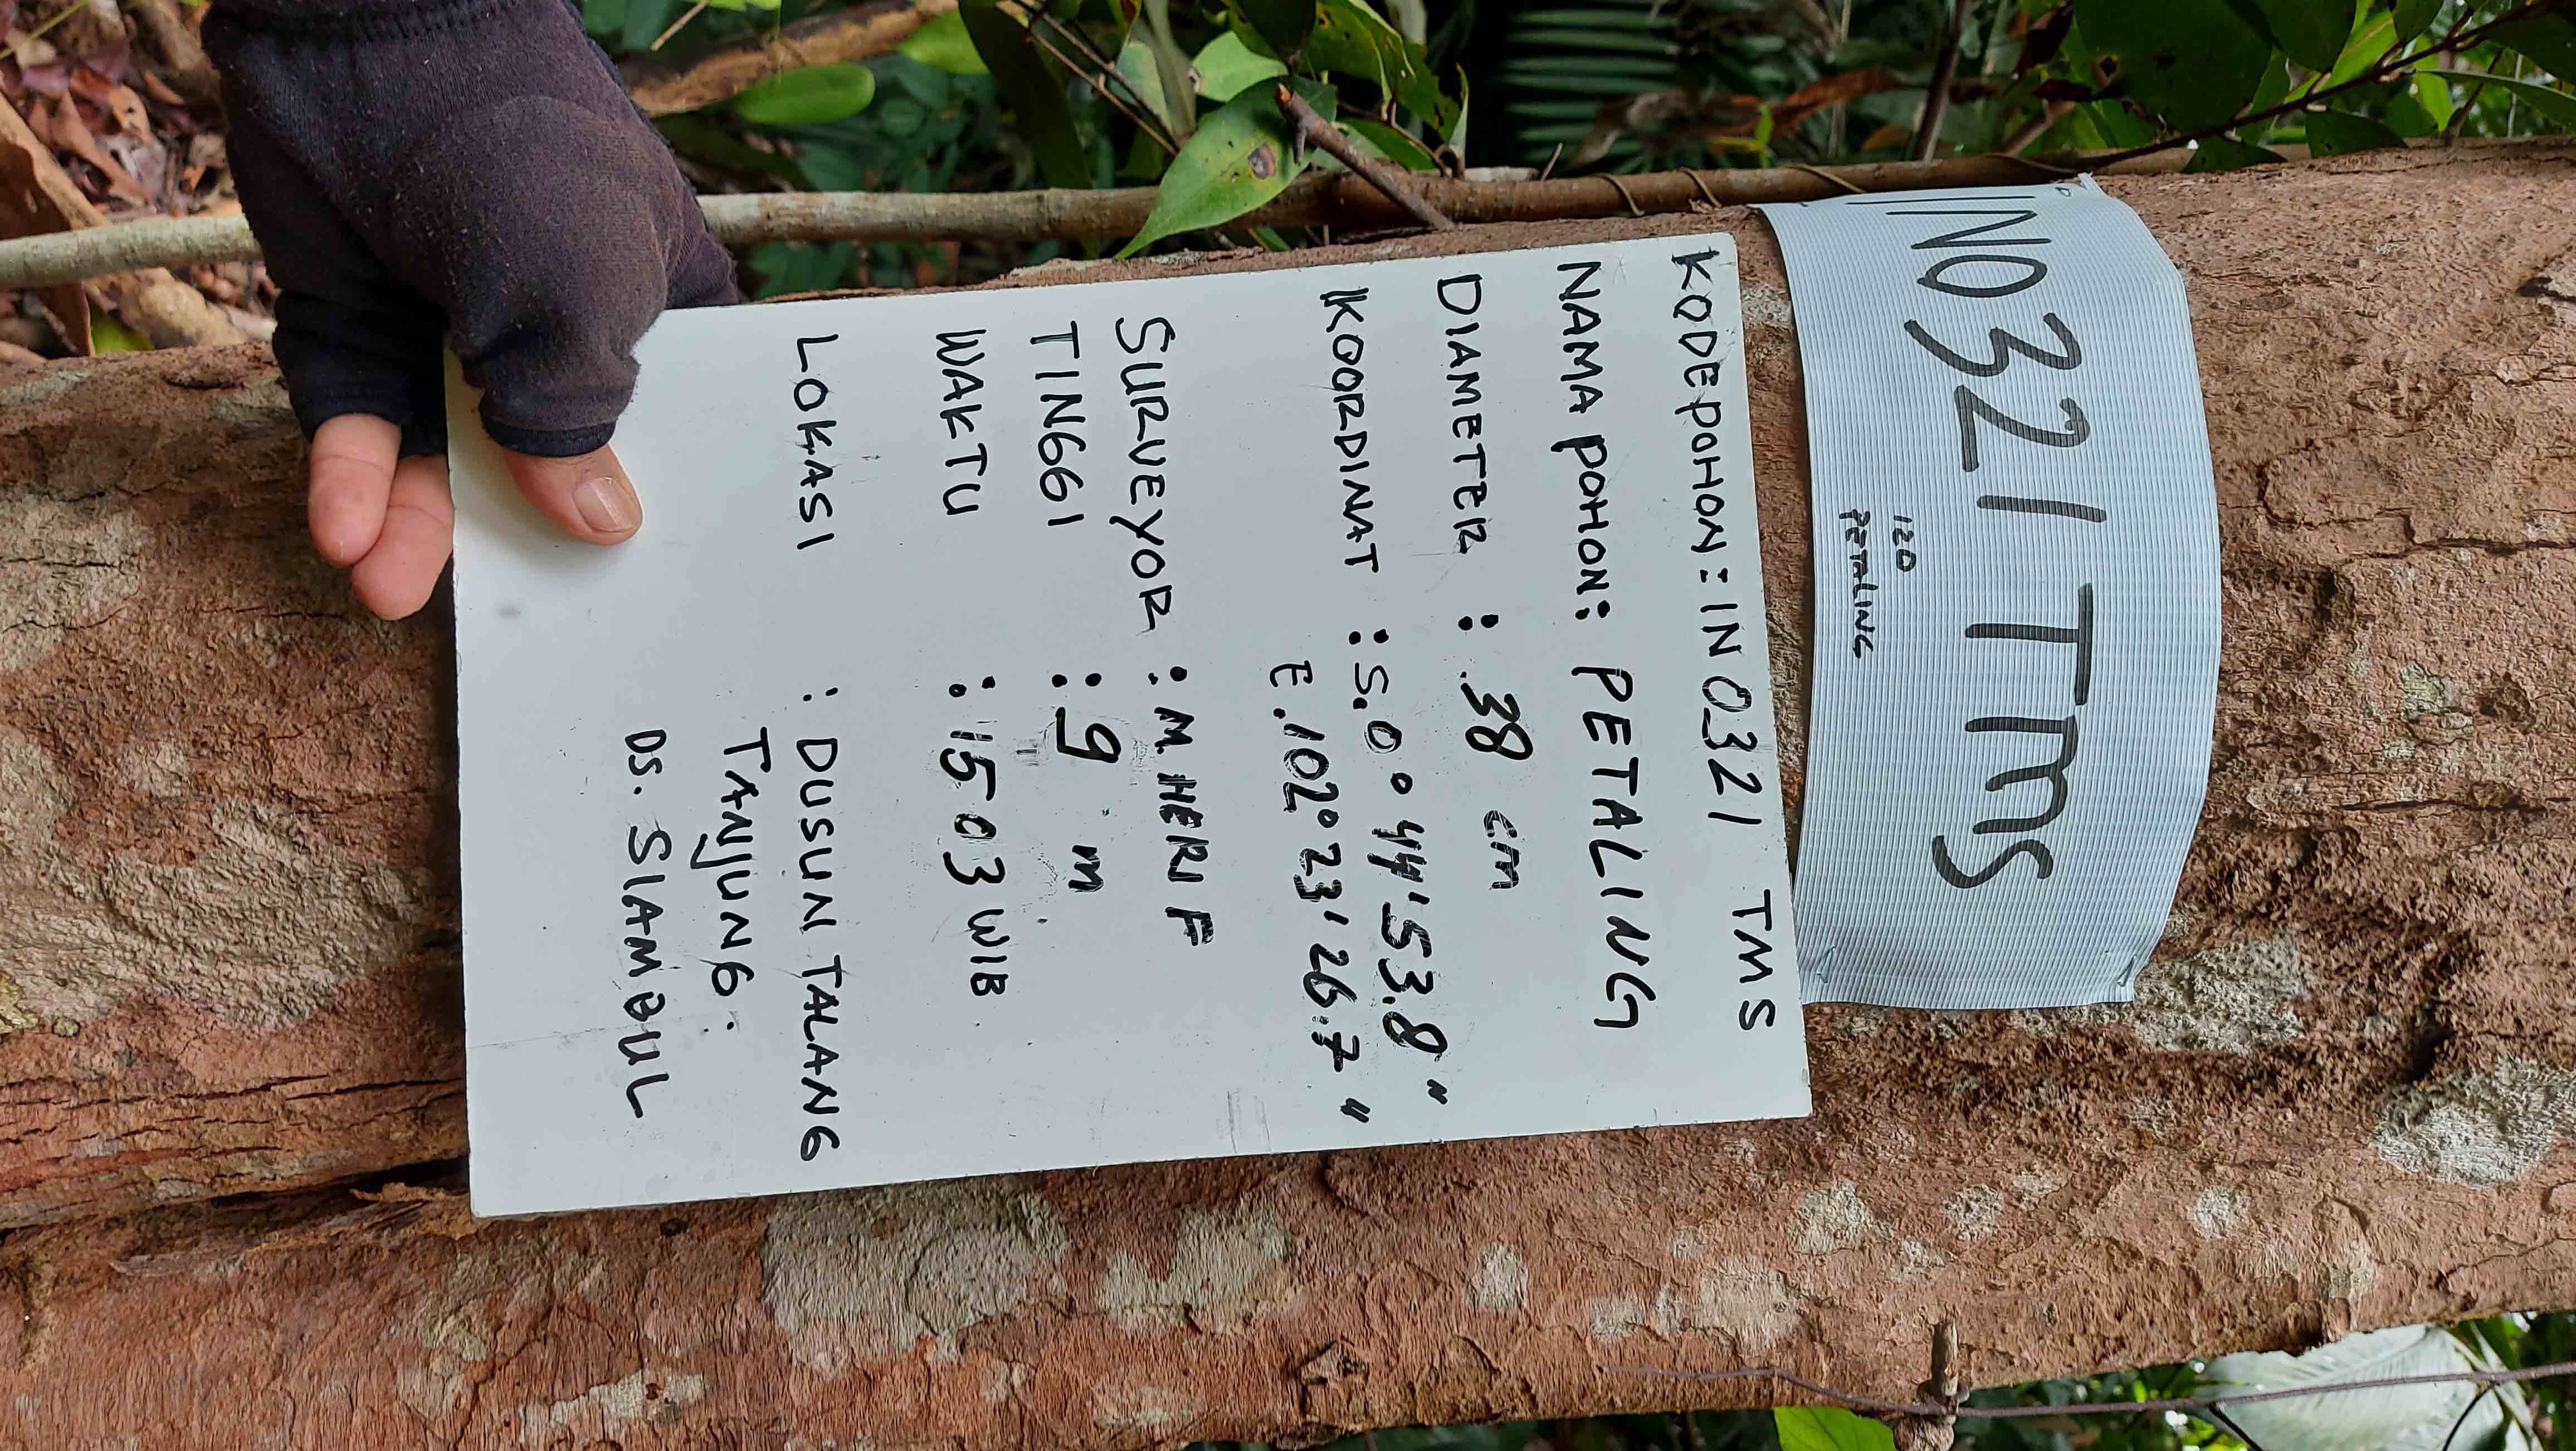 IN0321 TMS
120
PETALING
KODE POHON : IN 0321 TMS
NAMA POHON : PETALING
DIAMETER : 38 cm
KOORDINAT : S. 0° 44' 53.8"
E. 102° 23' 26.7"
SURVEYOR : M. HERI F
TINGGI : 9 m
WAKTU : 15 03 WIB
LOKASI : DUSUN TALANG
TANJUNG.
DS. SIAMBUL